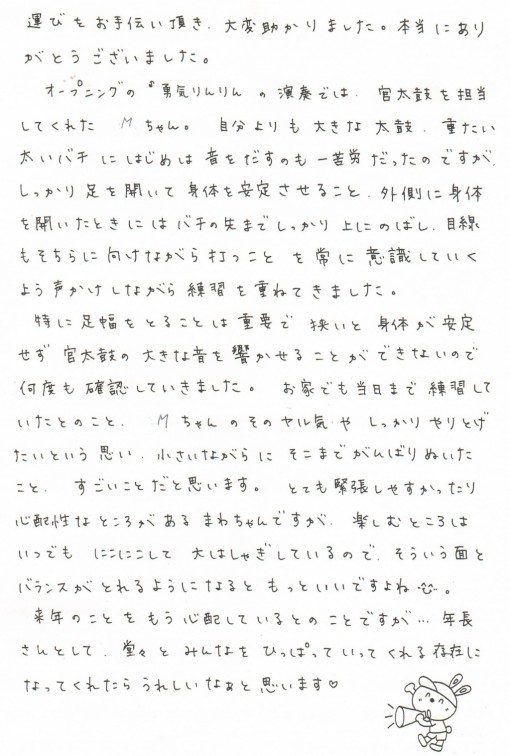 運びをお手伝い頂き、大変助かりました。本当にあり
がとうございました。
オープニングの『勇気りんりん の演奏では、官太鼓を担当
してくれた Mちゃん。 自分よりも大きな太鼓、重たい
太いバチ にはじめは 音をだすのも 一苦労だったのですが、
しっかり足を開いて身体を安定させること、外側に身体
を開いたときにはバチの先までしっかり上にのばし、目線
もそちらに向けながら打つことを常に意識していく
よう声かけしながら練習を重ねてきました。
特に足幅をとることは重要で 狭いと 身体が安定
せず 官太鼓の大きな音を響かせることができないので
何度も確認していきました。 お家でも当日まで練習して
いたとのこと、 Mちゃんのそのヤル気や しっかりやりとげ
たいという思い、小さいながらに そこまでがんばりぬいた
こと、 すごいことだと思います。 とても緊張しやすかったり
心配性なところがある まわちゃんですが、楽しむところは
いつでも にこにこして 大はしゃぎしているので、そういう面と
バランスがとれるようになると もっといいですよね。
来年のことをもう心配しているとのことですが… 年長
さんとして、堂々と みんなを ひっぱっていってくれる存在に
なってくれたら うれしいなぁと思います♡